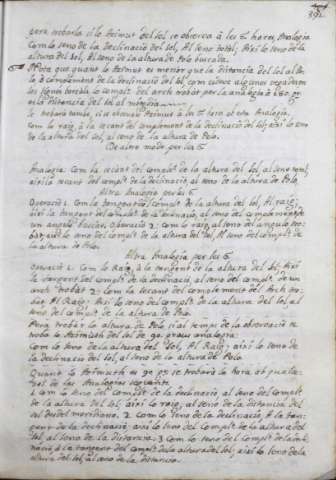 391
pera trobarla si lo Azimut del sol se observa à les 6 hores, Analogia
Com lo seno de la declinaciò del sol, Al seno total; Axi lo seno de la
altura del sol, Al seno de la altura de Polo buscada.
Nota que quant lo Azimut es menor que la distancia del sol al Po-
lo ò complement de la declinaciò del sol, com
es la distancia del sol al
se trobarà també, si se observa Azimut à les 6 hores ab esta Analogia,
com lo raig, à la secant del complement de la declinaciò del sol; aixi lo seno
de la altura del sol, al seno de la altura de Polo.
De altro modo per les 6
Analogia. Com la secant del complt de la altura del sol, al seno total,
aixi la secant del complt de la declinaciò al seno de la altura de Polo.
Altra Analogia per les 6
Operaciò 1. Com la tangent del complt de la altura del sol, Al raig;
aixi la tangent del complt de la declinaciò, al seno del complement de
un angulo buscat, Operaciò 2: com lo raig, al seno del angulo tro-
bat, aixi lo seno del complt de la altura del sol, Al seno del complt de
la altura de Polo.
Altra Analogia per les 6
Operaciò 1. Com lo Raig, à la tangent de la altura del sol; Axi
la tangent del complt de la declinaciò, al seno del complt de un
arch trobat 2. Com la secant del complement del Arch tro-
bat, Al Raig: Axi lo seno del complt de la altura del sol, al
seno del complt de la altura de Polo.
Pera trobar la altura de Polo si al temps de la observaciò se
troba lo Azimuth del sol de 90 graus analogia
Com lo seno de la altura del sol, Al Raig; aixi lo seno de
la declinaciò del sol, al seno de la altura de Polo
Quant lo Azimuth es 90 gs se trobarà la hora ab qualse-
vol de las Analogias seguents.
1. com lo seno del complt de la declinaciò, al seno del complt
de la altura del sol, aixi lo raig, al seno de la distancia del
sol desdel meridiano. 2. Com lo seno de la declinaciò, à la tan-
gent de la declinaciò, aixi lo seno del complt de la altura del
sol, al seno de la distancia. 3 com lo seno del complt de la decli-
naciò, à la tangent del complt de la altura del sol, aixi lo seno de la
altura del sol, al seno de la distancia.